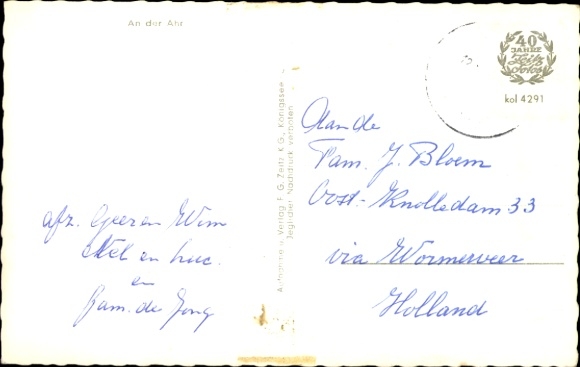 An der Ahr
40
JAHRE
Zeitz
Fotos
kol 4291
Aufnahme u. Verlag F. G. Zeitz K.G., Königssee
Jeglicher Nachdruck verboten
Aan de
Fam. J. Bloem
Oost-Knollendam 33
via Wormerveer
Holland
afz. Geer en Wim
Nel en Luc.
en
fam. de Jong